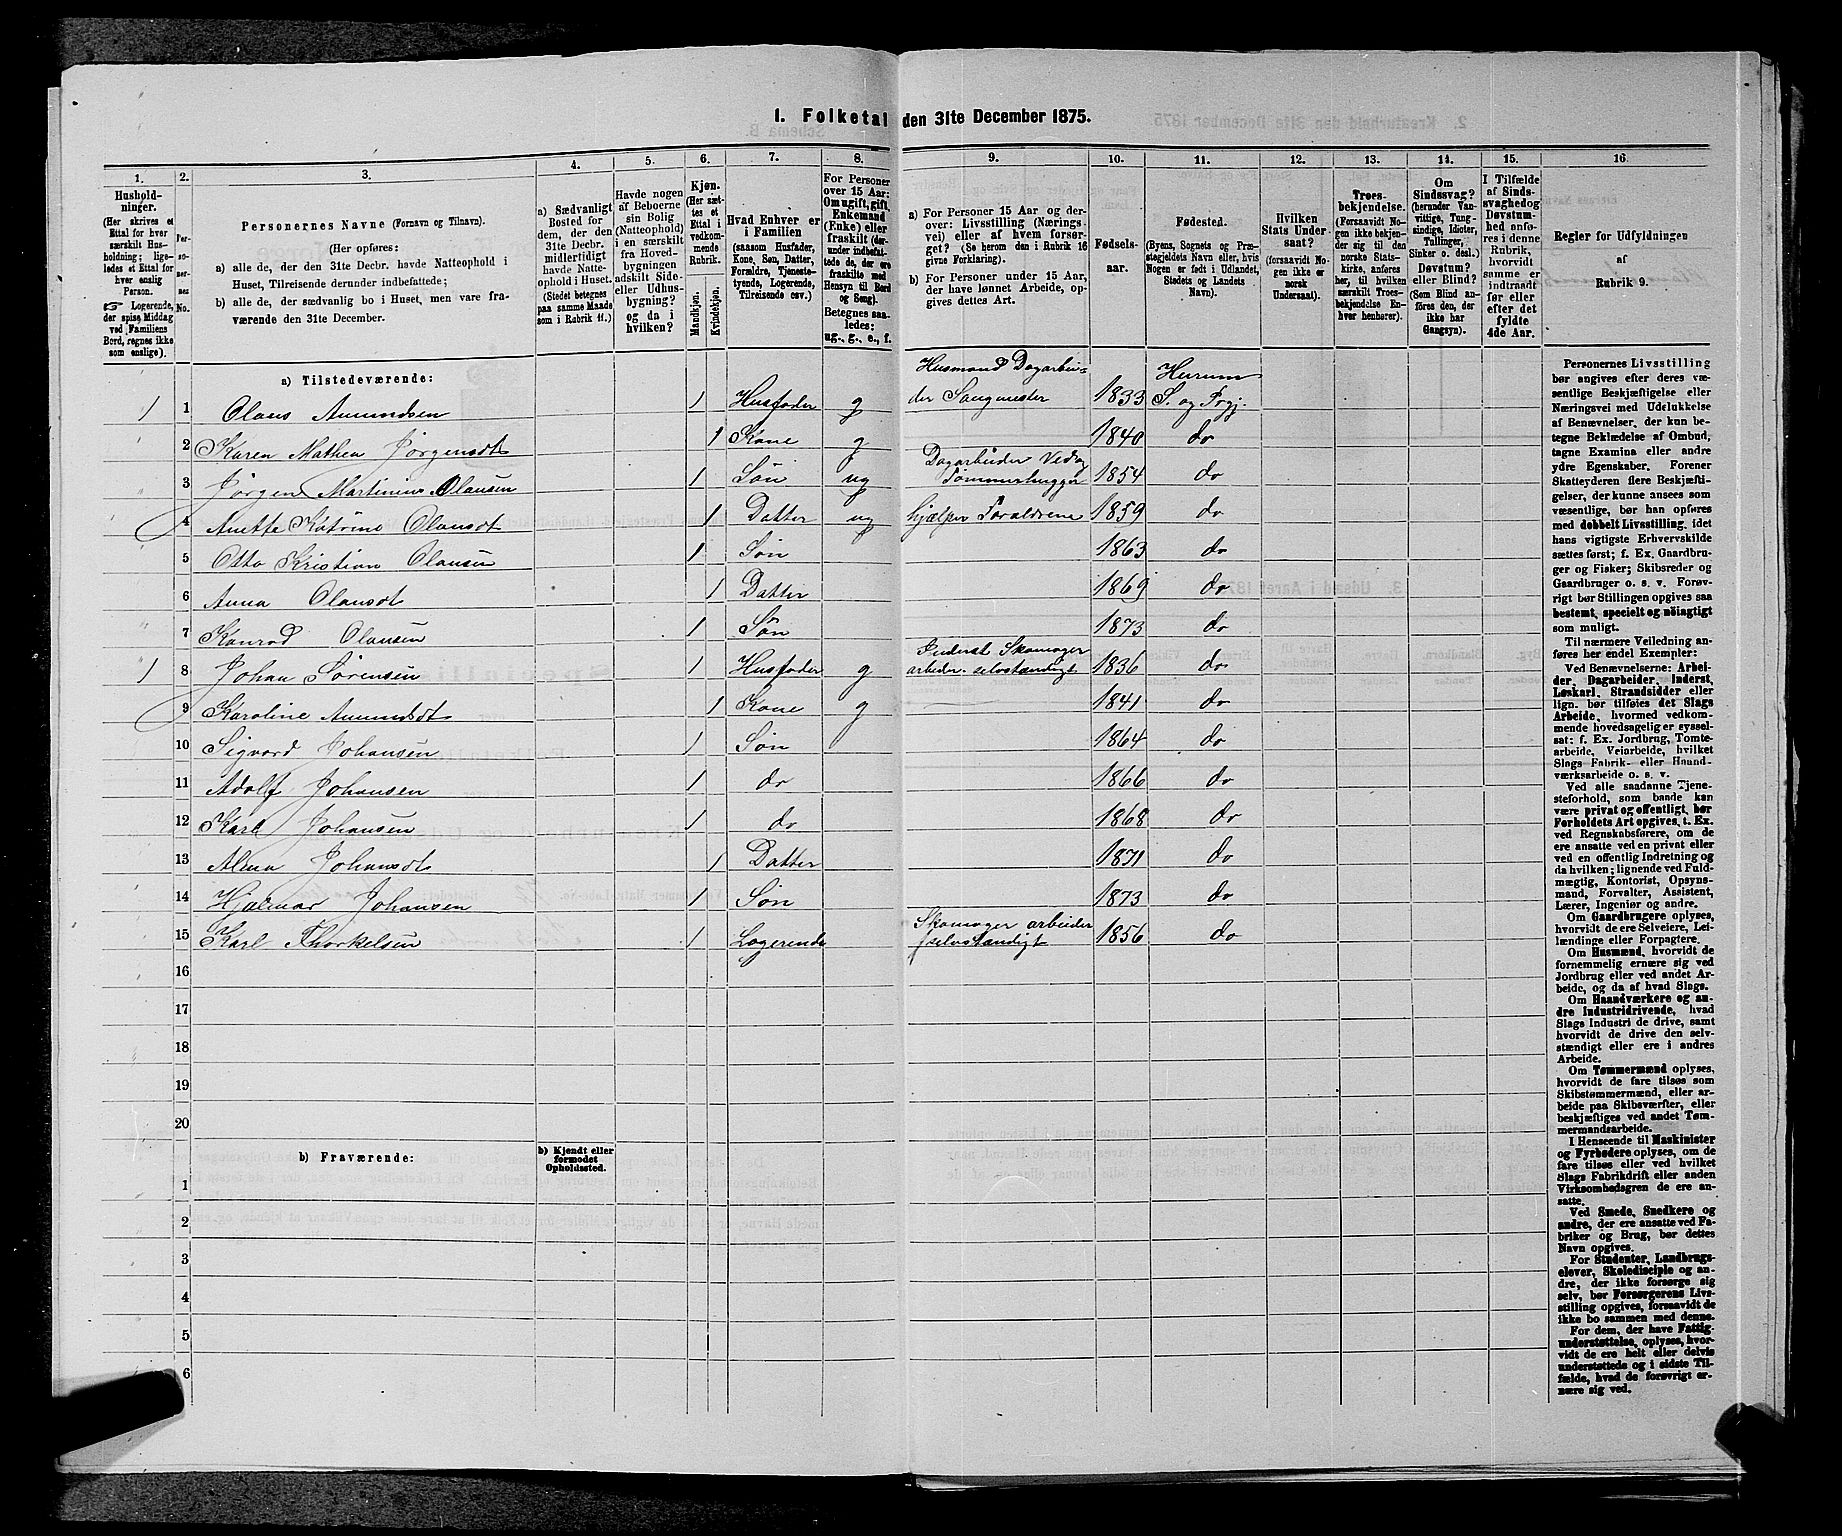 1. Folketal den 31te December 1875.
1.
2.
3.
4.
5.
6.
7.
8.
9.
10.
11.
12.
13.
14.
15.
16
Hushold-
ninger.
(Her skrives et
Ettal for hver
særskilt Hus-
holdning; lige-
ledes et Ettal for
hver enslig
Person.
☞ Logerende,
der spise Middag
ved Familiens
Bord, regnes ikke
som enslige).
Per-
soner-
nes
No.
Personernes Navne (Fornavn og Tilnavn).
(Her opføres:
a) alle de, der den 31te Decbr. havde Natteophold i
Huset, Tilreisende derunder indbefattede;
b) alle de, der sædvanlig bo i Huset, men vare fra-
værende den 31te December.
a) Sædvanligt
Bosted for
dem, der den
31te Decbr.
midlertidigt
havde Natte-
ophold i Huset.
(Stedet betegnes
paa samme Maade
som i Rubrik 11.)
Havde nogen
af Beboerne
sin Bolig
(Natteophold)
i en særskilt
fra Hoved-
bygningen
adskilt Side-
eller Udhus-
bygning? og
og da i
hvilken?
Kjøn.
(Her sæt-
tes et
Ettal i
vedkom-
mende
Rubrik.
Mandkjøn.
Kvindekjøn.
Hvad Enhver er
i Familien
(saasom Husfader,
Kone, Søn, Datter,
Forældre, Tjeneste-
tyende, Logerende,
Tilreisende osv.)
For Personer
over 15 Aar:
Om ugift, gift,
Enkemand
(Enke) eller
fraskilt (der-
under indbefat-
tede de, der ere
fraskilte med
Hensyn til Bord
og Seng).
Betegnes saa-
ledes:
ug., g., e., f.
a) For Personer 15 Aar og der-
over: Livsstilling (Nærings-
vei) eller af hvem forsør-
get? (Se herom den i Rubrik 16
givne Forklaring).
b) For Personer under 15 Aar,
der have lønnet Arbeide, op-
gives dettes Art.
Fødsels-
aar.
Fødested.
(Byens, Sognets og Præ-
stegjeldets Navn eller, hvis
Nogen er født i Udlandet,
Stedets og Landets
Navn).
Hvilken
Stats Under-
saat?
(forsaavidt No-
gen ikke er
norsk
Undersaat).
Troes-
bekjendelse.
(Forsaavidt No-
gen ikke bekjen-
der sig til den
norske Stats-
kirke, anføres
her, til hvilken
særskilt Troes-
bekjendelse En-
hver henhører).
Om
Sindssvag?
(herunder Van-
vittige, Tung-
sindige, Idioter,
Tullinger,
Sinker o. desl.)
Døvstum?
eller Blind?
(Som Blind an-
føres den, der
ikke har
Gangsyn).
I Tilfælde
af Sinds-
svaghed og
Døvstum-
hed anfø-
res i denne
Rubrik,
hvorvidt
samme er
indtraadt
før eller
efter det
fyldte
4de Aar.
Regler for Udfyldningen
af
Rubrik 9.
a) Tilstedeværende:
1 1 Olaus Amundsen 1 Husfader g Husmand Dagarbei-
der Saugmester 1833 Hurum
S. og Prgj.
2 Karen Mathea Jørgensdt 1 Kone g 1840 do
3 Jørgen Martinius Olausen 1 Søn ug Dagarbeider Ved og
Tømmerhugger 1854 do
4 Anette Katrine Olausdt 1 Datter ug hjælper Foraldrene 1859 do
5 Otto Kristian Olausen 1 Søn 1863 do
6 Anna Olausdt 1 Datter 1869 do
7 Konrad Olausen 1 Søn 1873 do
1 8 Johan Sørensen 1 Husfader g Inderst Skomager
arbeider selvstændigt 1836 do
9 Karoline Amundsdt 1 Kone g 1841 do
10 Sigvard Johansen 1 Søn 1864 do
11 Adolf Johansen 1 do 1866 do
12 Karl Johansen 1 do 1868 do
13 Alma Johansdt 1 Datter 1871 do
14 Hjalmar Johansen 1 Søn 1873 do
15 Karl Thorkelsen 1 Logerende Skomager arbeider
selvstændigt 1856 do
16
17
18
19
20
b) Fraværende:
b) Kjendt eller
formodet
Opholdssted.
1
2
3
4
5
6
Personernes Livsstilling
bør angives efter deres væ-
sentlige Beskjæftigelse eller
Næringsvei med Udelukkelse
af Benævnelser, der kun be-
tegne Beklædelse af Ombud,
tagne Examina eller andre
ydre Egenskaber. Forener
Skatteyderen flere Beskjæfti-
gelser, der kunne ansees som
væsentlige, bør han opføres
med dobbelt Livsstilling, idet
hans vigtigste Erhvervskilde
sættes først; f. Ex. Gaardbru-
ger og Fisker; Skibsreder og
Gaardbruger o. s. v. Forøv-
rigt bør Stillingen opgives saa
bestemt, specielt og nöiagtigt
som muligt.
Til nærmere Veiledning an-
føres her endel Exempler:
Ved Benævnelserne: Arbei-
der, Dagarbeider, Inderst,
Løskarl, Strandsidder eller
lign. bør tilføies det Slags
Arbeide, hvormed vedkom-
mende hovedsagelig er syssel-
sat: f. Ex. Jordbrug, Tomte-
arbeide, Veiarbeide, hvilket
Slags Fabrik- eller Haand-
værksarbeide o. s. v.
Ved alle saadanne Tjene-
steforhold, som baade kan
være privat og offentligt, bør
Forholdets Art opgives, t. Ex.
ved Regnskabsførere, om de
ere ansatte ved en privat eller
ved en offentlig Indretning og
da hvilken; lignende ved Fuld-
mægtig, Kontorist, Opsyns-
mand, Forvalter, Assistent,
Lærer, Ingeniør og andre.
Om Gaardbrugere oplyses,
hvorvidt de ere Selveiere, Lei-
lændinge eller Forpagtere.
Om Husmænd, hvorvidt de
fornemmelig ernære sig ved
Jordbrug eller ved andet Ar-
beide, og da af hvad Slags.
Om Haandværkere og an-
dre Industridrivende, hvad
Slags Industri de drive, samt
hvorvidt de drive den selv-
stændigt eller ere i andres
Arbeide.
Om Tømmermænd oplyses,
hvorvidt de fare tilsøs som
Skibstømmermænd, eller ar-
beide paa Skibsværfter, eller
beskjæftiges ved andet Tøm-
mermandsarbeide.
I Henseende til Maskinister
og Fyrbødere oplyses, om de
fare tilsøs eller ved hvilket
Slags Fabrikdrift eller anden
Virksomhedsgren de ere an-
satte.
Ved Smede, Snedkere og
andre, der ere ansatte ved Fa-
briker og Brug, bør dettes
Navn opgives.
For Studenter, Landbrugs-
elever, Skoledisciple og an-
dre, der ikke forsørge sig
selv, bør Forsørgerens Livs-
stilling opgives, forsaavidt de
ikke bo sammen med denne.
For dem, der have Fattig-
understøttelse, oplyses, hvor-
vidt de ere helt eller delvis
understøttede og i sidste Til-
fælde, hvad de forøvrigt er-
nære sig ved.